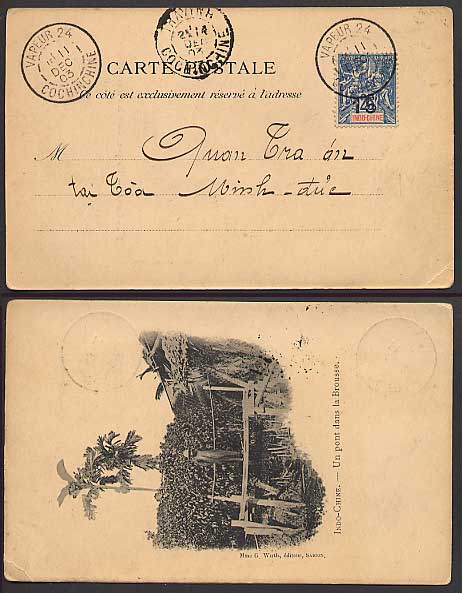 VAPEUR 24
11
DEC
03
COCHINCHINE
14
DEC
03
COCHINCHINE
VAPEUR 24
11
CARTE POSTALE
Ce côté est exclusivement réservé à l'adresse
INDO-CHINE
M Quan Tra ơn
tại Tòa Minh-đức
INDO-CHINE. — Un pont dans la Brousse.
Mme G. Wirth, éditeur, SAIGON.